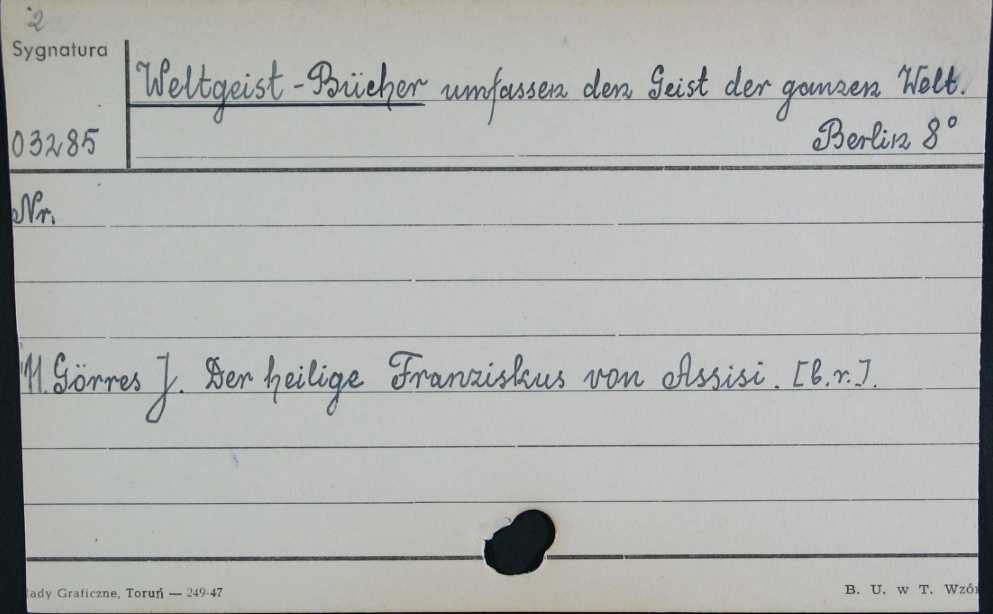 2
Sygnatura
Weltgeist-Bücher umfassen den Geist der ganzen Welt.
03285
Berlin 8°
Nr.
11. Görres J. Der heilige Franziskus von Assisi. [b.r.].
Graficzne, Toruń — 249-47
B. U. w T. Wzór